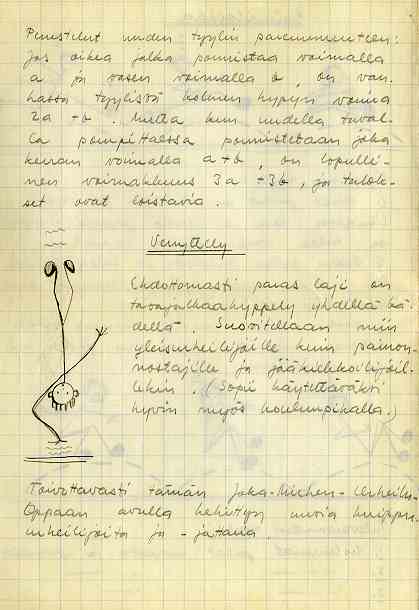 Perustelut uuden tyylin paremmuuteen:
Jos oikea jalka ponnistaa voimalla
a ja vasen voimalla b, on van-
hassa tyylissä kolmen hypyn voima
2a + b. Mutta kun uudella taval-
la pompittaessa ponnistetaan joka
kerran voimalla a+b, on lopulli-
nen voimakkuus 3a+3b, ja tulok-
set ovat loistavia.
Venyttely
Ehdottomasti paras laji on
tasajalkaahyppely yhdellä kä-
dellä. Suositellaan niin
yleisurheilijoille kuin painon-
nostajille ja jääkiekkoilijoil-
lekin. (Sopii käytettäväksi
hyvin myös)
Toivottavasti tämän Joka-Miehen-Urheilu-
Oppaan avulla kehittyy uusia huippu-
urheilijoita ja -jataria.